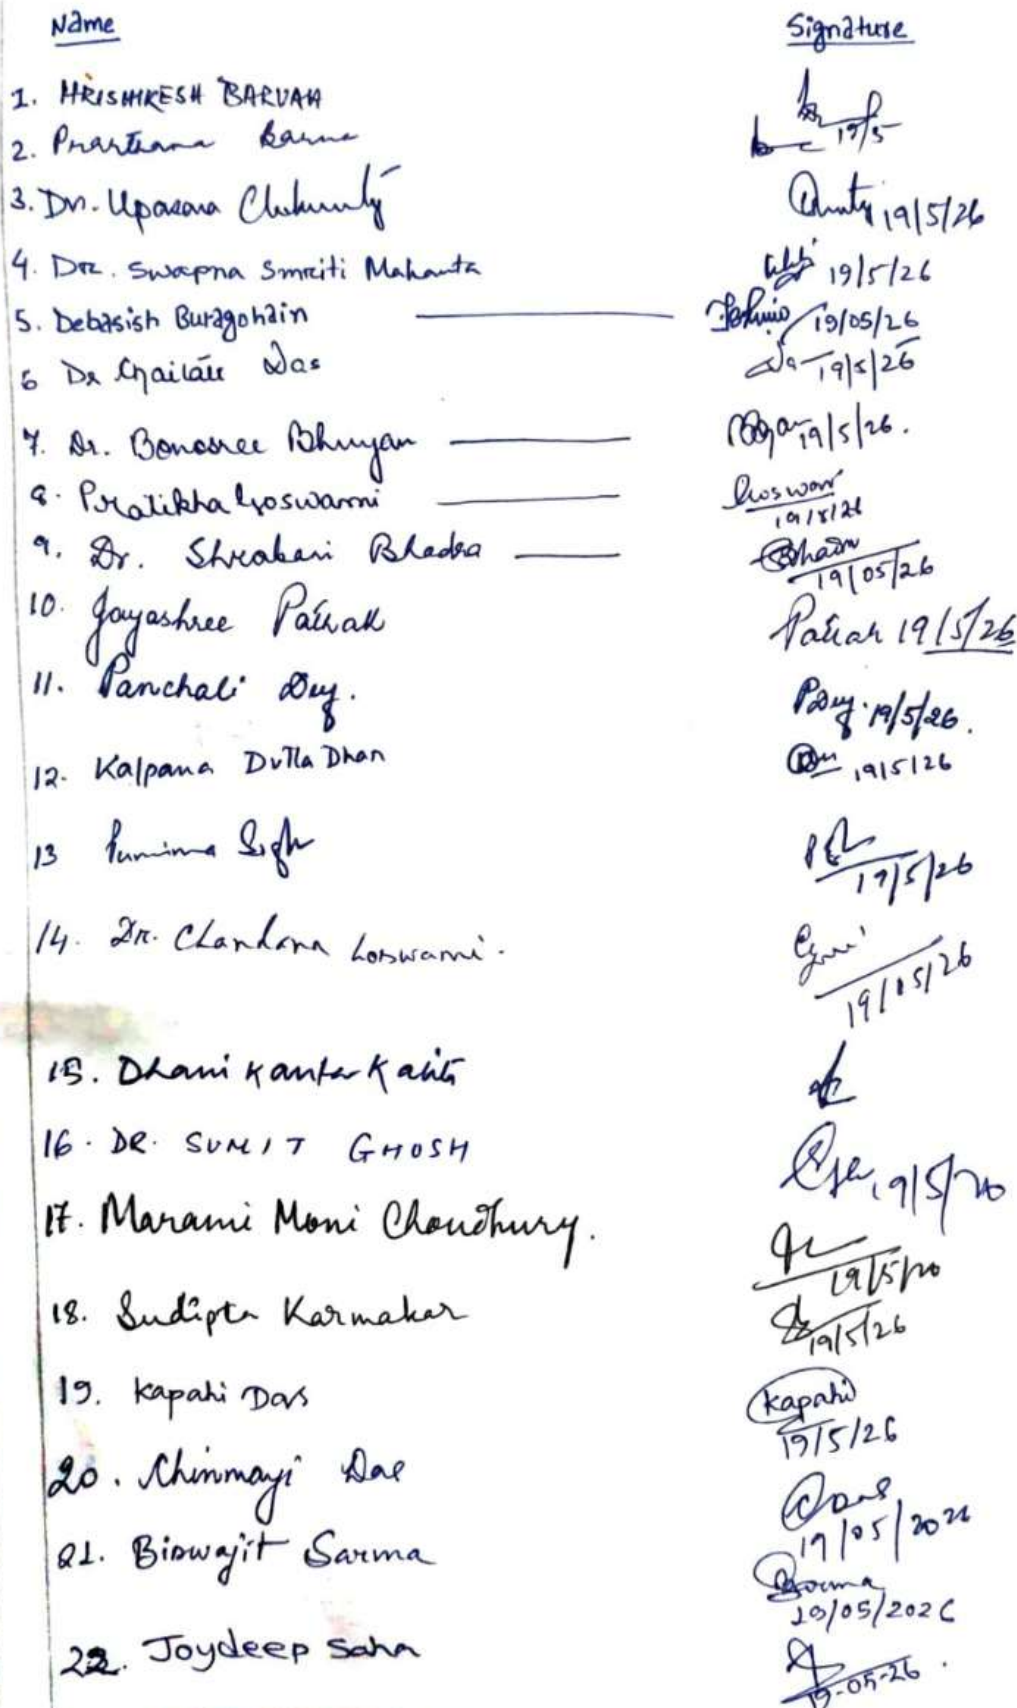 Name Signature
1. HRISHIKESH BARUAH
2. Prarthana Barua 19/5
3. Dr. Upasana 19/5/26
4. Dr. Swapna Smriti Mahanta 19/5/26
5. Debasish Buragohain 19/05/26
6 Dr Das 19/5/26
7. Dr. Bonosree Bhuyan 19/5/26.
8. Pratikha Goswami Goswami
19/5/26
9. Dr. Shrabani Bhadra
19/05/26
10. Jayashree Pathak Pathak 19/5/26
11. Panchali Dey. PDey. 19/5/26.
12. Kalpana Dutta Dhar 19/5/26
13 Purnima
19/5/26
14. Dr. Chandana Goswami.
19/05/26
15. Dhani Kanta Kalita
16. DR. SUMIT GHOSH 19/5/20
17. Marami Moni Choudhury.
19/5/20
18. Sudipta Karmakar
19/5/26
19. Kapahi Das Kapahi
19/5/26
20. Chinmayi Das Das
19/05/2026
21. Biswajit Sarma Sarma
19/05/2026
22. Joydeep Saha
19-05-26.